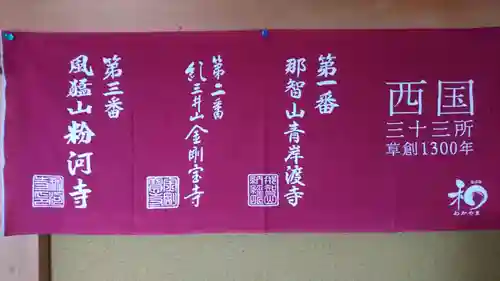 西国
三十三所
草創1300年
和
わかやま
第一番
那智山青岸渡寺
第二番
紀三井山金剛宝寺
第三番
風猛山粉河寺